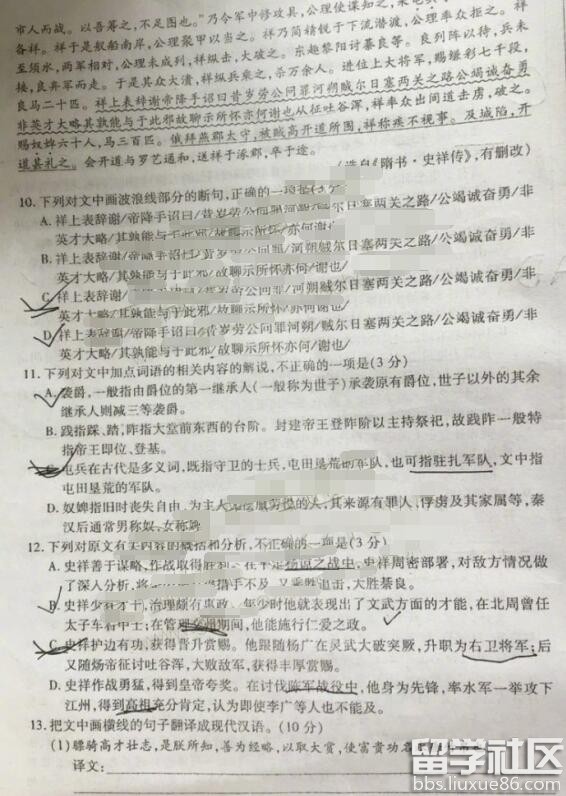 市人而战。以吾筹之，不足图也。”乃令军中修攻具，公理使谍知之，
备祥。祥于是舣船南岸，公理聚甲以当之。祥乃简精锐于下流潜渡，公理率众拒之。祥
至须水，两军相对，公理未成列，祥纵击，大破之。东趣黎阳讨綦良等。良列阵以待，兵未
接，良弃军而走。于是其众大溃，祥纵兵乘之，杀万余人。进位上大将军，赐缣彩七千段，
良马二十匹。祥上表辞谢帝降手诏曰昔岁劳公问罪河朔贼尔日塞两关之路公竭诚奋勇
非英才大略其孰能与于此邪故聊示所怀亦何谢也从征吐谷浑，祥率众出间道击虏，破之。
赐奴婢六十人，马三百匹。俄拜燕郡太守，被贼高开道所围，祥称疾不视事。及城陷，开
道甚礼之。会开道与罗艺通和，送祥于涿郡，卒于途。
（选自《隋书·史祥传》，有删改）
10. 下列对文中画波浪线部分的断句，正确的一项是（3分）
A. 祥上表辞谢/帝降手诏曰/昔岁劳公问罪河朔/贼尔日塞两关之路/公竭诚奋勇/非
英才大略/其孰能与于此邪/故聊示所怀亦何/谢也/
B. 祥上表辞谢/帝降手诏曰/昔岁劳公问罪/河朔贼尔日塞两关之路/公竭诚奋勇/非
英才大略/其孰能与于此邪/故聊示所怀/亦何谢也/
C. 祥上表辞谢/河朔贼尔日塞两关之路/公竭诚奋勇/非
英才大略/其孰能与于此邪/故聊示所怀亦何/谢也/
D. 祥上表辞谢/帝降手诏曰/昔岁劳公问罪河朔/贼尔日塞两关之路/公竭诚奋勇/非
英才大略/其孰能与于此邪/故聊示所怀/亦何谢也/
11. 下列对文中加点词语的相关内容的解说，不正确的一项是（3分）
A. 袭爵，一般指由爵位的第一继承人（一般称为世子）承袭原有爵位，世子以外的其余
继承人则减三等袭爵。
B. 践指踩、踏；阼指大堂前东西的台阶。封建帝王登阼阶以主持祭祀，故践阼一般特
指帝王即位、登基。
C. 屯兵在古代是多义词，既指守卫的士兵，屯田垦荒的军队，也可指驻扎军队，文中指
屯田垦荒的军队。
D. 奴婢指旧时丧失自由、为主人无偿服劳役的人，其来源有罪人、俘虏及其家属等，秦
汉后通常男称奴，女称婢。
12. 下列对原文有关内容的概括和分析，不正确的一项是（3分）
A. 史祥善于谋略，作战取得胜利。在平定杨谅之战中，史祥周密部署，对敌方情况做
了深入分析，措手不及，又乘胜追击，大胜綦良。
B. 史祥少有才干，治理颇有惠政。年少时他就表现出了文武方面的才能，在北周曾任
太子车右中士；在管理期间，他能施行仁爱之政。
C. 史祥护边有功，获得晋升赏赐。他跟随杨广在灵武大破突厥，升职为右卫将军；后
又随炀帝征讨吐谷浑，大败敌军，获得丰厚赏赐。
D. 史祥作战勇猛，得到皇帝夸奖。在讨伐陈军战役中，他身为先锋，率水军一举攻下
江州，得到高祖充分肯定，认为即使李广等人也不能及。
13. 把文中画横线的句子翻译成现代汉语。（10分）
（1）骠骑高才壮志，是朕所知，善为经略，以取大赏，使富贵功名
译文：
留学社区
bbs.liuxue86.com